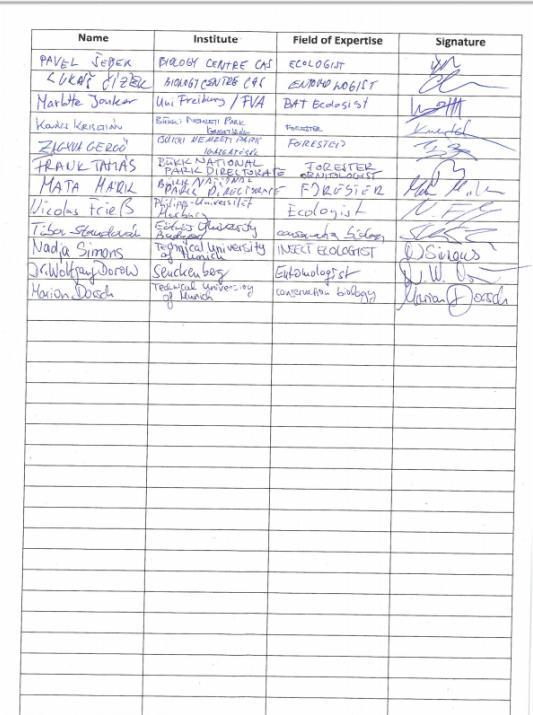 Name Institute Field of Expertise Signature
PAVEL ŠEBEK BIOLOGY CENTRE CAS ECOLOGIST
LUKÁŠ ČÍŽEK BIOLOGY CENTRE CAS ENTOMOLOGIST
Uni Freiburg / FVA BAT Ecologist
FORESTER
GERGŐ NEMZETI PARK FORESTER
FRANK TAMÁS BÜKK NATIONAL PARK DIRECTORATE FORESTER ORNITOLOGIST
MATA MARK NATIONAL PARK DIRECTORATE FORESTER
Nicolas Frieß Philipp-Universität Marburg Ecologist
Tibor University biology
Nadja Simons Technical University of Munich INSECT ECOLOGIST N Simons
Dr. Wolfgang Dorow Senckenberg Entomologist
Marion Dorsch Technical University of Munich conservation biology Marion Dorsch